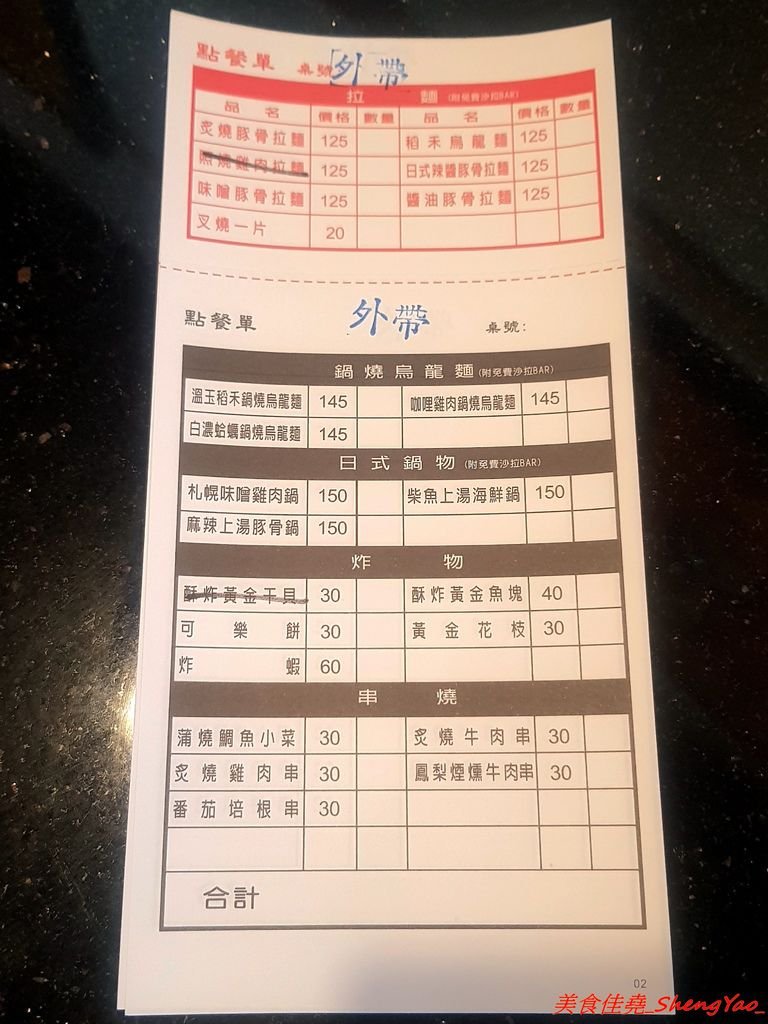 點餐單 桌號 外帶
拉麵 (附免費沙拉BAR)
品名 價格 數量 品名 價格 數量
炙燒豚骨拉麵 125 稻禾烏龍麵 125
照燒雞肉拉麵 125 日式辣醬豚骨拉麵 125
味噌豚骨拉麵 125 醬油豚骨拉麵 125
叉燒一片 20
點餐單 外帶 桌號:
鍋燒烏龍麵 (附免費沙拉BAR)
溫玉稻禾鍋燒烏龍麵 145 咖哩雞肉鍋燒烏龍麵 145
白濃蛤蠣鍋燒烏龍麵 145
日式鍋物 (附免費沙拉BAR)
札幌味噌雞肉鍋 150 柴魚上湯海鮮鍋 150
麻辣上湯豚骨鍋 150
炸物
酥炸黃金干貝 30 酥炸黃金魚塊 40
可樂餅 30 黃金花枝 30
炸蝦 60
串燒
蒲燒鯛魚小菜 30 炙燒牛肉串 30
炙燒雞肉串 30 鳳梨煙燻牛肉串 30
番茄培根串 30
合計
02
美食佳堯_ShengYao_